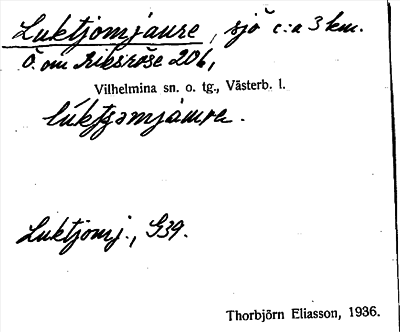 Luktjomjaure, sjö c:a 3 km.
Ö. om Riksröse 206,
Vilhelmina sn. o. tg., Västerb. l.
Luktjomj., G39.
Thorbjörn Eliasson, 1936.